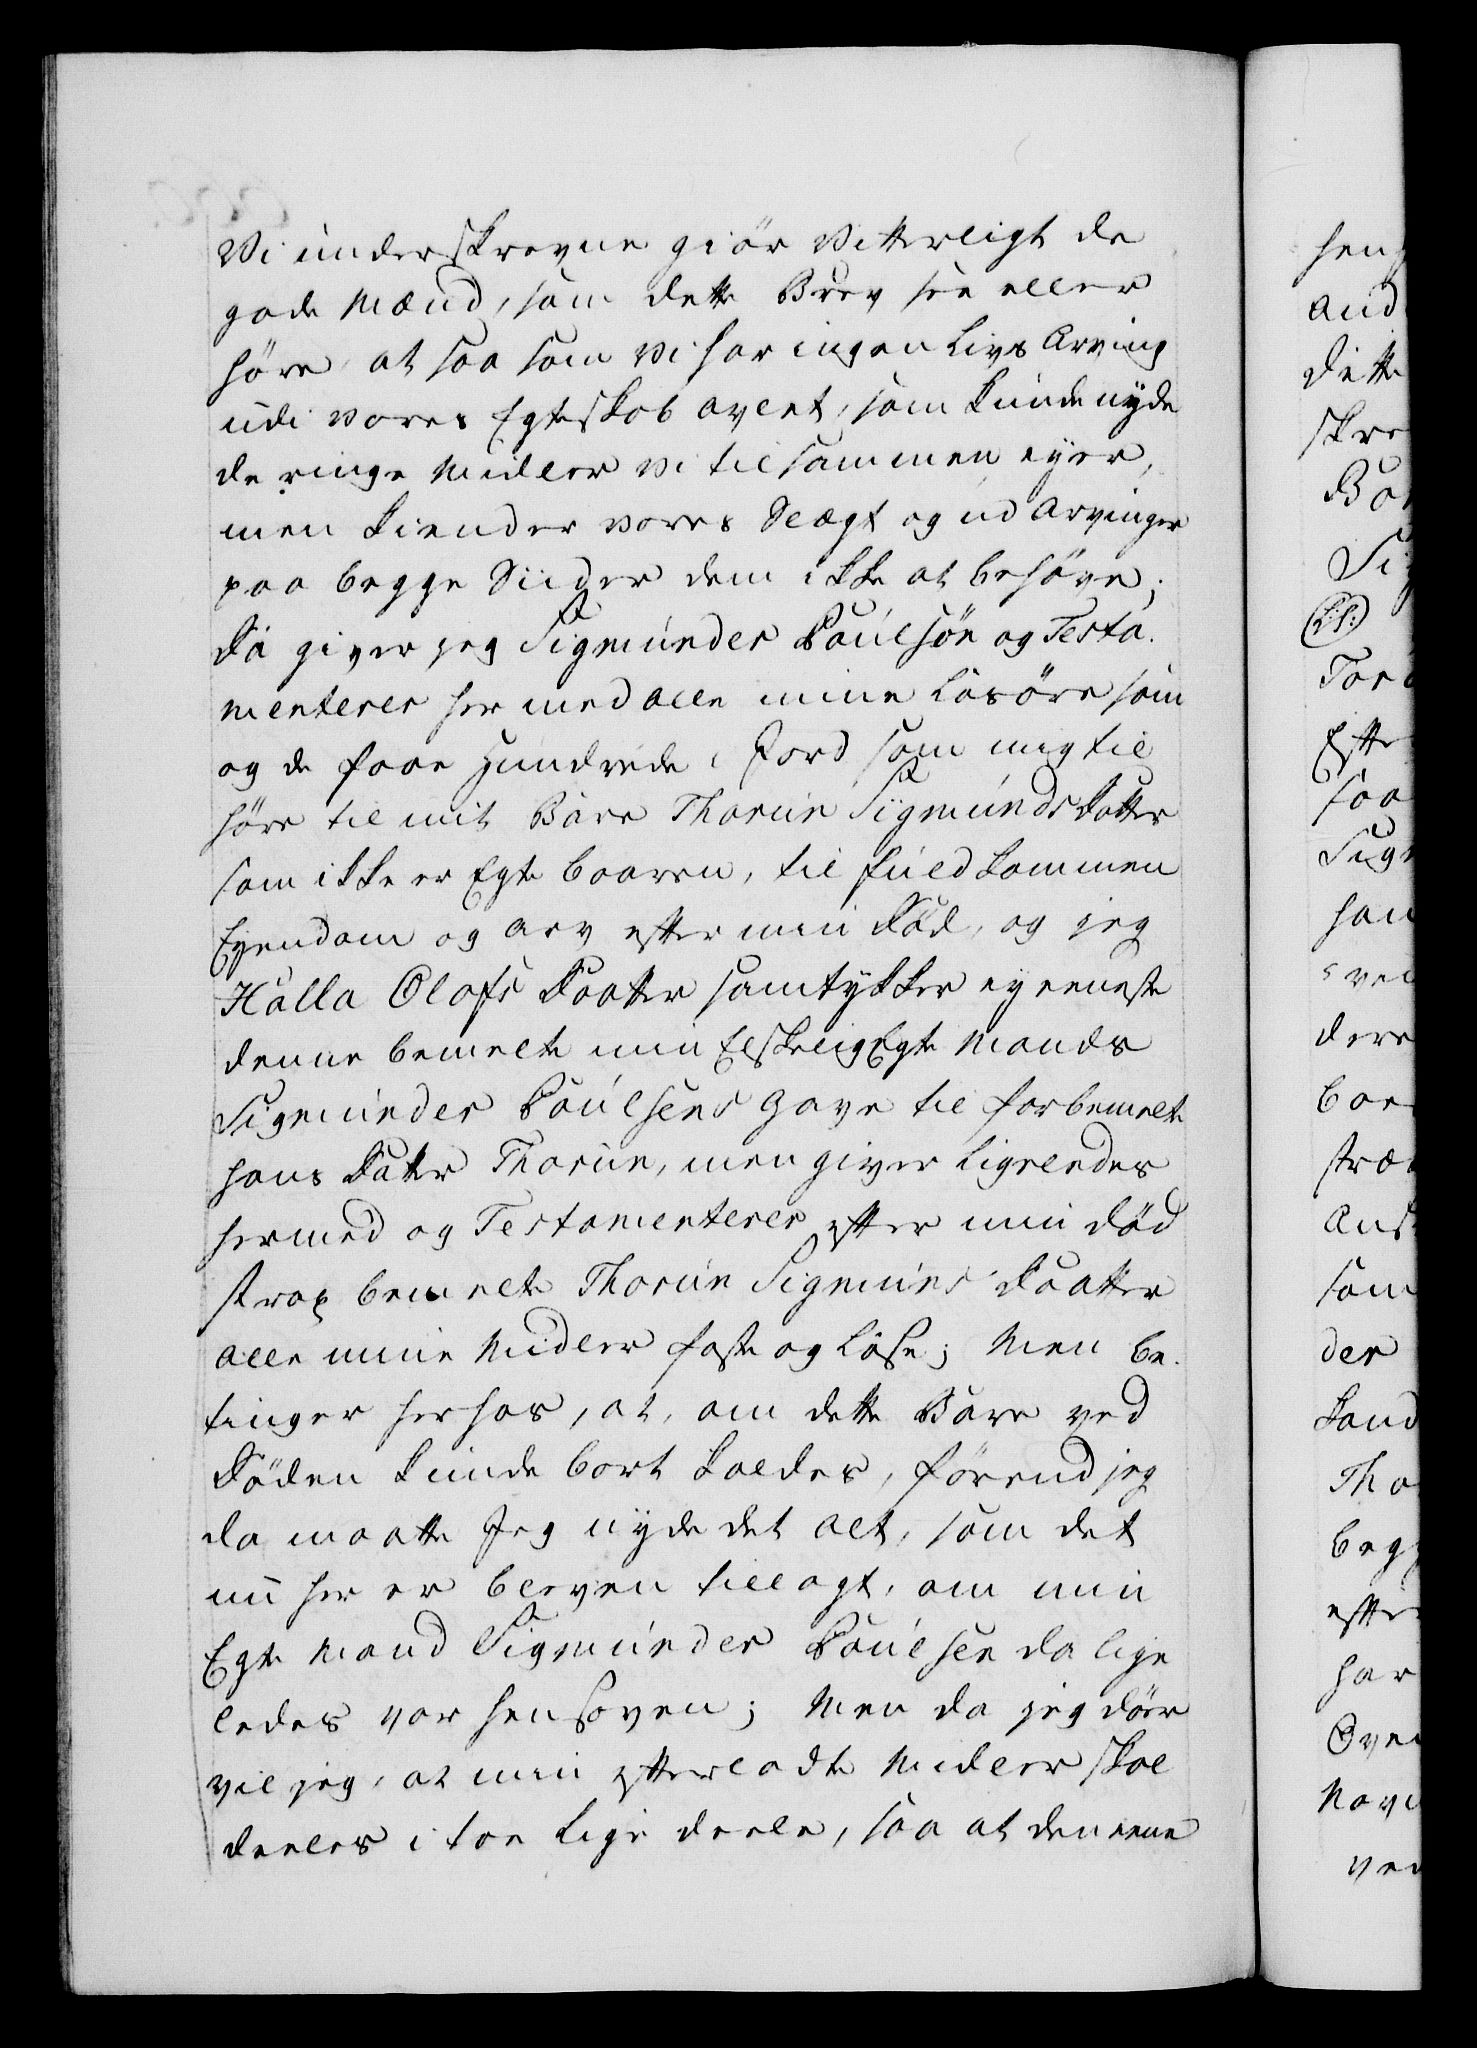 Vi underskrevne giör Vitterligt de
gode Mænd, som dette Brev see eller
höre, at saa som Vi har ingen Livs Arving
udi vores Egteskab avlet, som kunde nyde
de ringe Midler vi tilsammen eyer,
men kiender vores Slægt og ud Arvinger
paa begge Siider dem ikke at behöve;
Da giver jeg Sigmunder Poulsön og Testa-
menterer hermed alle mine Lösöre som
og de faae Hundrede i Jord som mig til
höre til mit Barn Thorun Sigmunds Datter
som ikke er Egte baaren, til fuldkommen
Eyendom og Arv efter min Död, og jeg
Halla Olafs Daatter samtykker ey eeneste
denne bemelte min Elskelig Egte Mands
Sigmunder Poulsens Gave til forbemelte
hans Datter Thorun, men giver Ligeledes
hermed og Testamenterer efter min död
strax bemelte Thorun Sigmuns Daatter
alle mine Midler faste og Löse; Men be-
tinger herhos, at, om dette Barn ved
Döden kunde bort kaldes, förend jeg
da maatte Jeg nyde det alt, som det
nu her er bleven tillagt, om min
Egte Mand Sigmunder Poulsen da lige
ledes var hensoven; Men da jeg döer
vil jeg, at min efterladte Midler skal
deeles i toe Lige deele, saa at den eene